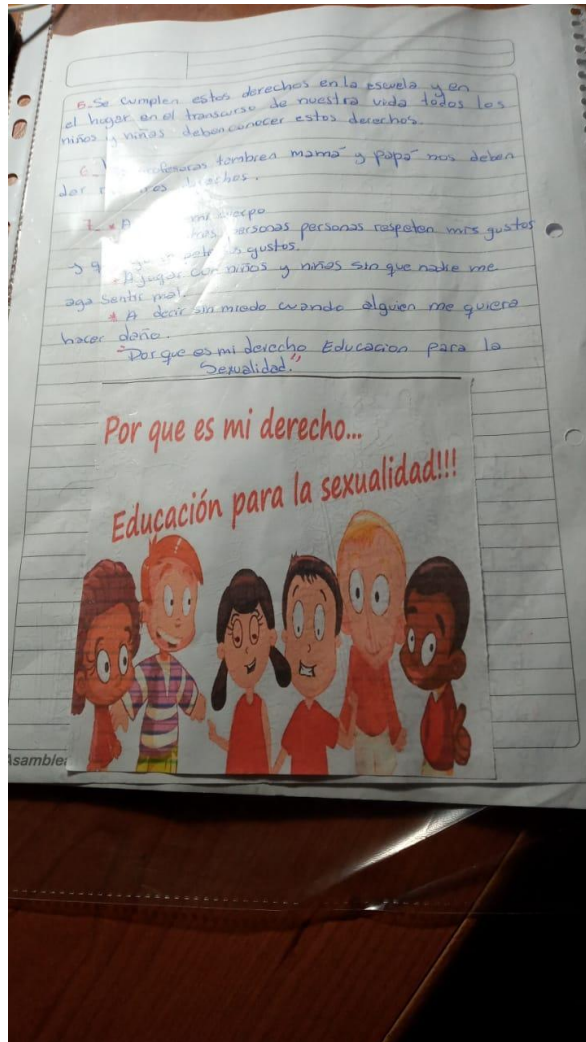 5.- Se cumplen estos derechos en la escuela y en
el hogar en el transcurso de nuestra vida todos los
niños y niñas deben conocer estos derechos.
6.- profesoras tambien mamá y papá nos deben
dar derechos.
7.- * A mi cuerpo
personas personas respeten mis gustos
y gustos.
* A jugar con niños y niñas sin que nadie me
aga sentir mal.
* A decir sin miedo cuando alguien me quiere
hacer daño.
"Por que es mi derecho Educacion para la
Sexualidad."
Por que es mi derecho...
Educación para la sexualidad!!!